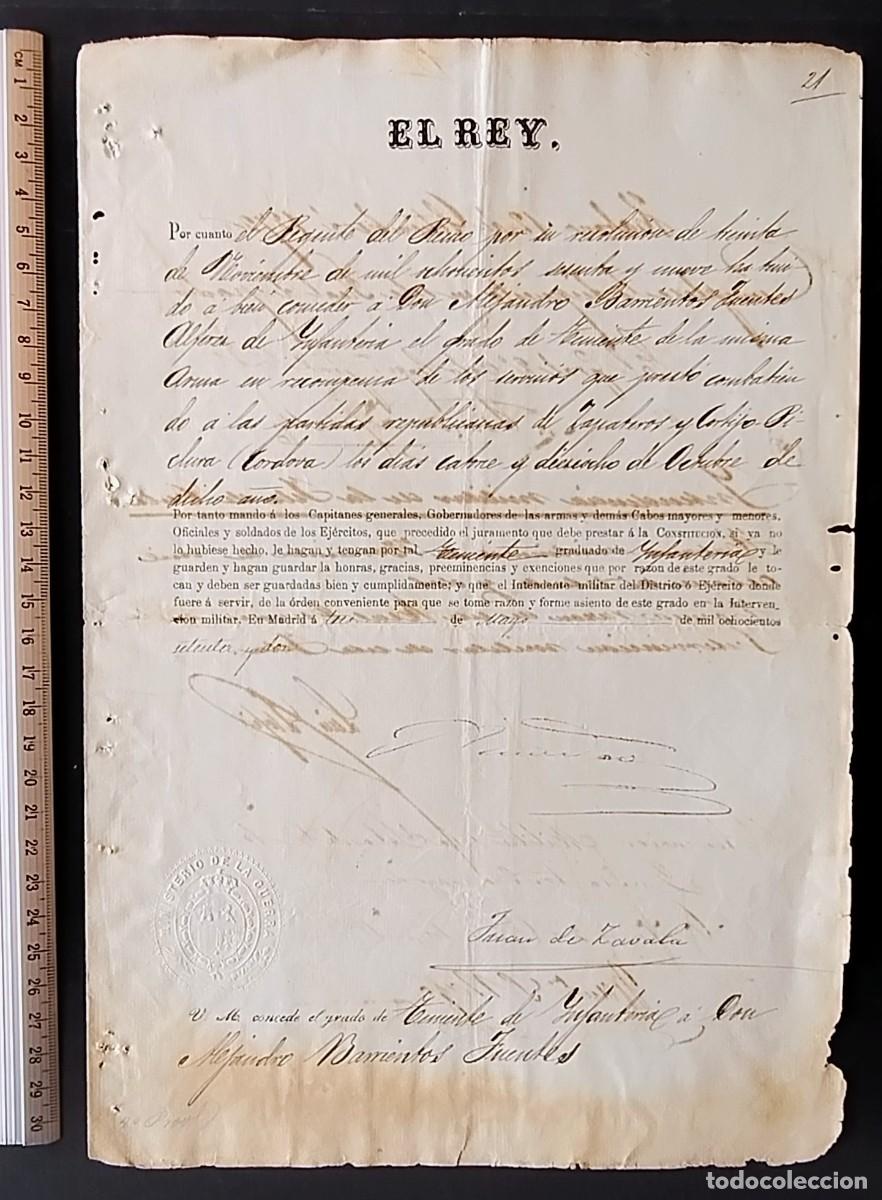 21
EL REY.
Por cuanto el Regente del Reino por su resolucion de treinta
de Noviembre de mil ochocientos sesenta y nueve ha teni
do a bien conceder á Don Alejandro Barrientos Fuentes
Alferez de Ynfanteria el grado de Teniente de la misma
Arma en recompensa de los servicios que prestó combatien
do a las partidas republicanas de Zapateros y Cortijo Pi-
clura (Cordova) los dias catorce y dieciocho de Octubre de
dicho año.
Por tanto mando á los Capitanes generales, Gobernadores de las armas y demás Cabos mayores y menores,
Oficiales y soldados de los Ejércitos, que precedido el juramento que debe prestar á la CONSTITUCION, si ya no
lo hubiese hecho, le hagan y tengan por tal Teniente graduado de Ynfanteria y le
guarden y hagan guardar la honras, gracias, preeminencias y exenciones que por razon de este grado le to-
can y deben ser guardadas bien y cumplidamente; y que el Intendente militar del Distrito ó Ejército donde
fuere á servir, de la órden conveniente para que se tome razon y forme asiento de este grado en la Interven-
cion militar. En Madrid á tres de Mayo de mil ochocientos
setenta y dos
MINISTERIO DE LA GUERRA
Juan de Zavala
V. M. concede el grado de Teniente de Ynfanteria á Don
Alejandro Barrientos Fuentes
CM 1
2
3
4
5
6
7
8
9
10
11
12
13
14
15
16
17
18
19
20
21
22
23
24
25
26
27
28
29
30
todocoleccion